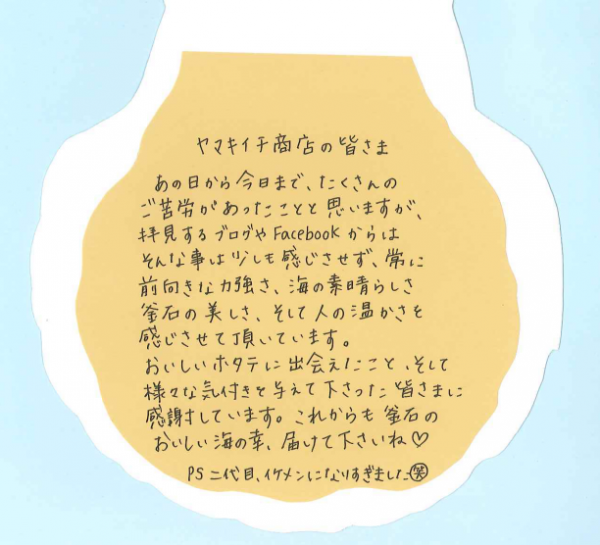 ヤマキイチ商店の皆さま
あの日から今日まで、たくさんの
ご苦労があったことと思いますが、
拝見するブログやFacebookからは
そんな事は少しも感じさせず、常に
前向きな力強さ、海の素晴らしさ
釜石の美しさ、そして人の温かさを
感じさせて頂いています。
おいしいホタテに出会えたこと、そして
様々な気付きを与えて下さった皆さまに
感謝しています。これからも釜石の
おいしい海の幸、届けて下さいね♡
PS 二代目、イケメンになりすぎました㊤笑